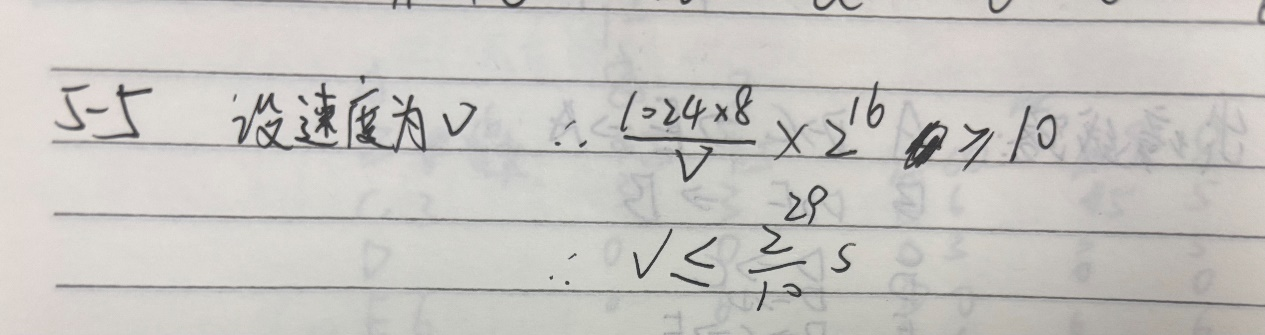 5-5 设速度为V ∴ \frac{1024×8}{V} × 2^{16} ≥ 10
∴ V ≤ \frac{2^{29}}{10} s